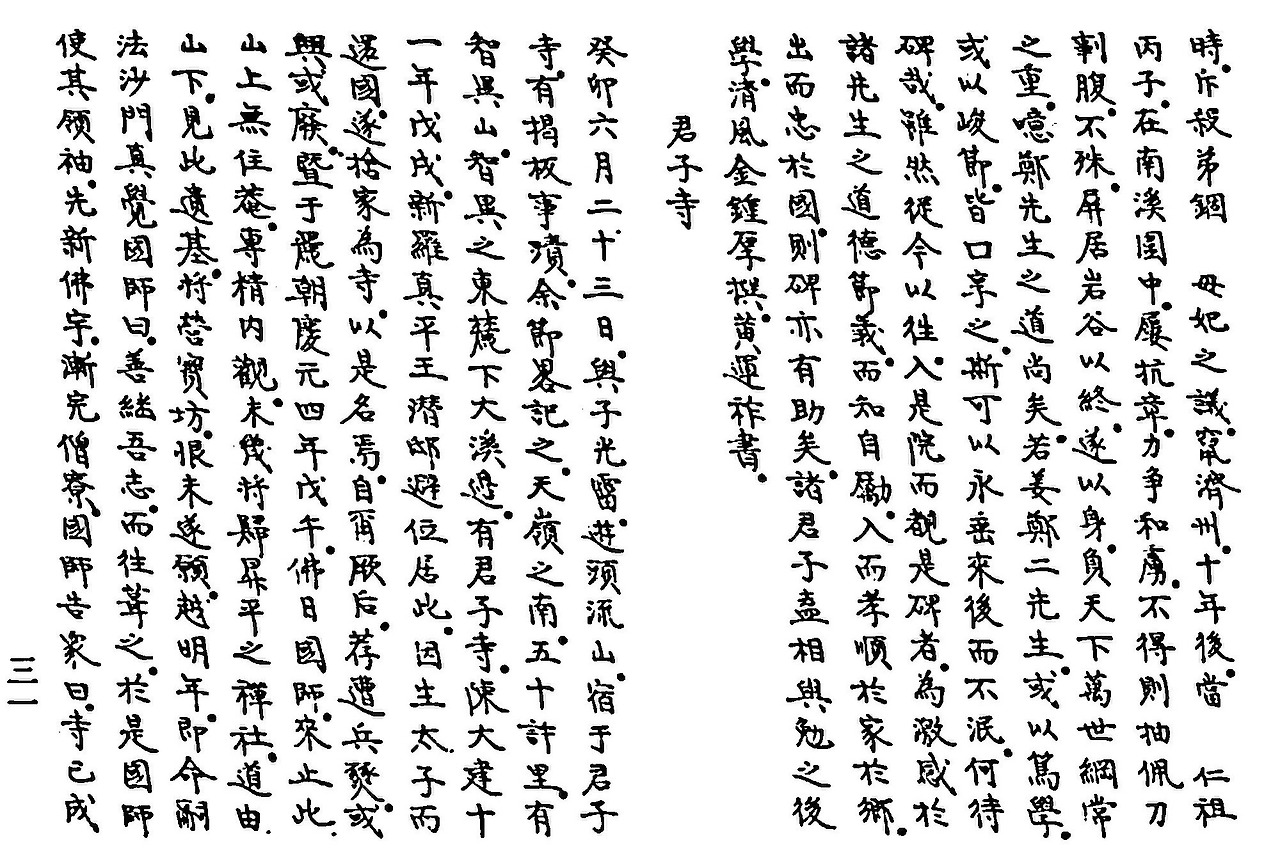 時斥殺弟錮 母妃之議竄濟州十年後當 仁祖
丙子在南漢圍中屢抗章力爭和虜不得則抽佩刀
剚腹不殊屏居岩谷以終遂以身負天下萬世綱常
之重噫鄭先生之道尚矣若姜鄭二先生或以篤學
或以峻節皆口享之斯可以永垂來後而不泯何待
碑哉雖然從今以往入是院而覩是碑者為激感於
諸先生之道德節義而知自勵入而孝順於家於鄉
出而忠於國則碑亦有助矣諸君子盍相與勉之後
學淸風金鍾厚撰黃運祚書
君子寺
癸卯六月二十三日與子光雷遊頭流山宿于君子
寺有揭板事蹟余節畧記之天嶺之南五十許里有
智異山智異之東麓下大溪邊有君子寺陳大建十
一年戊戌新羅真平王潜邸避位居此因生太子而
還國遂捨家為寺以是名焉自甭厥后荐遭兵燹或
興或廢暨于麗朝慶元四年戊午佛日國師來止此
山上無住菴專精內觀未幾將歸昇平之禪社道由
山下見此遺基將營寶坊恨未遂願越明年即命嗣
法沙門真覺國師曰善繼吾志而往葺之於是國師
使其領袖先新佛宇漸完僧寮國師告衆曰寺已成
三一